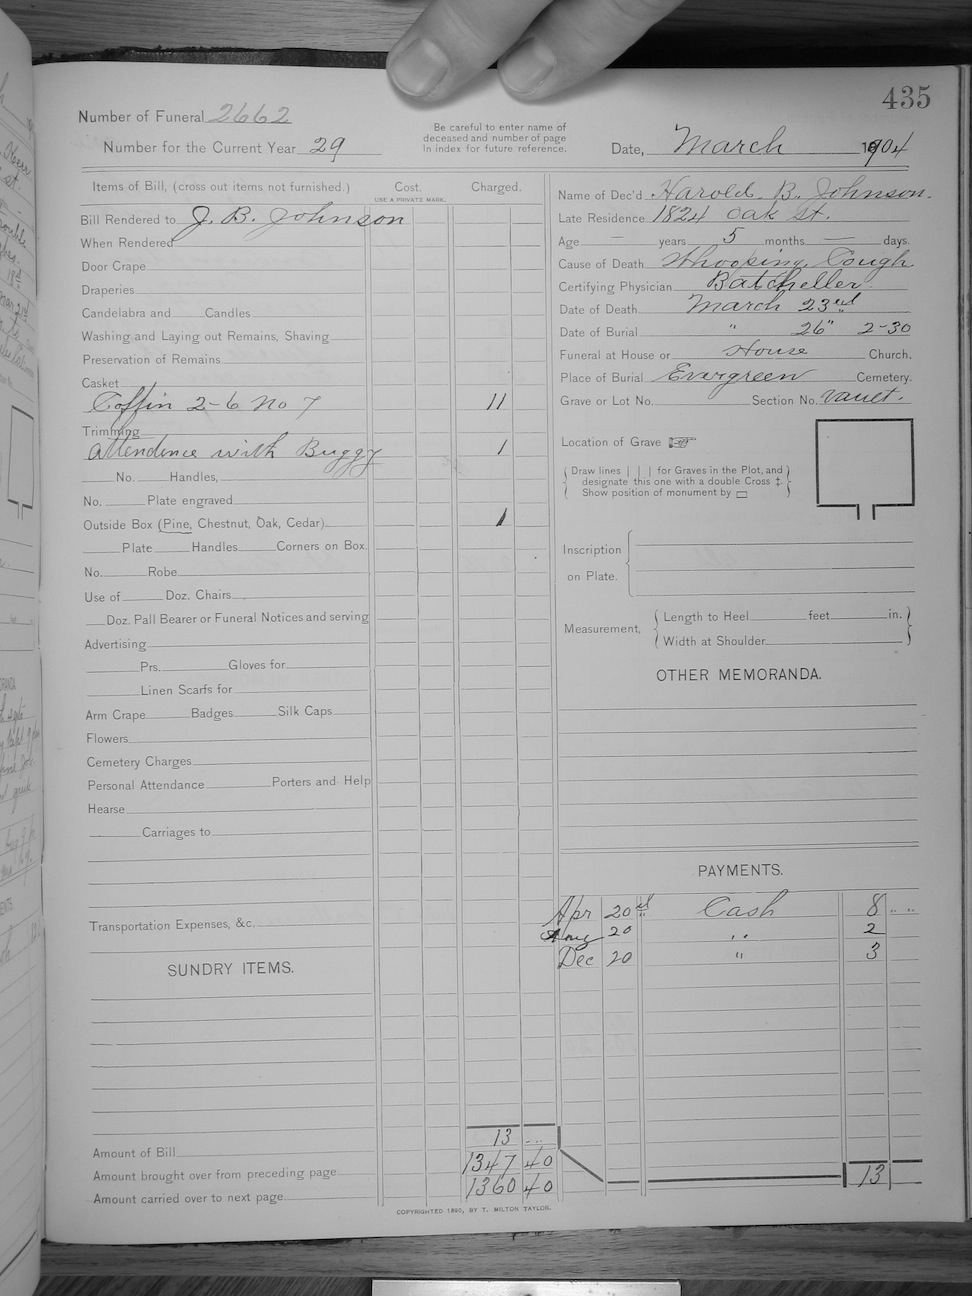 435
Number of Funeral 2662
Number for the Current Year 29
Be careful to enter name of
deceased and number of page
In index for future reference.
Date, March 1904
Items of Bill, (cross out items not furnished.) Cost. Charged.
USE A PRIVATE MARK.
Bill Rendered to J. B. Johnson
When Rendered
Door Crape
Draperies
Candelabra and Candles
Washing and Laying out Remains, Shaving
Preservation of Remains
Casket
Coffin 2-6 No 7 11
Trimming
Attendence with Buggy 1
No. Handles,
No. Plate engraved
Outside Box (Pine, Chestnut, Oak, Cedar) 1
Plate Handles Corners on Box.
No. Robe
Use of Doz. Chairs
Doz. Pall Bearer or Funeral Notices and serving
Advertising
Prs. Gloves for
Linen Scarfs for
Arm Crape Badges Silk Caps
Flowers
Cemetery Charges
Personal Attendance Porters and Help
Hearse
Carriages to
Transportation Expenses, &c.
SUNDRY ITEMS.
13 ...
Amount of Bill
Amount brought over from preceding page 1347 40
Amount carried over to next page 1360 40
Name of Dec'd Harold B. Johnson.
Late Residence 1824 Oak St.
Age — years 5 months — days.
Cause of Death Whooping Cough
Certifying Physician Batcheller
Date of Death March 23rd
Date of Burial " 26" 2-30
Funeral at House or House Church,
Place of Burial Evergreen Cemetery.
Grave or Lot No. Section No. Vault.
Location of Grave ☞
Draw lines | | | for Graves in the Plot, and
designate this one with a double Cross ‡.
Show position of monument by ▭
Inscription
on Plate.
Measurement, Length to Heel feet in.
Width at Shoulder
OTHER MEMORANDA.
PAYMENTS.
Apr 20 Cash 8 .. ..
Aug 20 " 2
Dec 20 " 3
13
COPYRIGHTED 1890, BY T. MILTON TAYLOR.